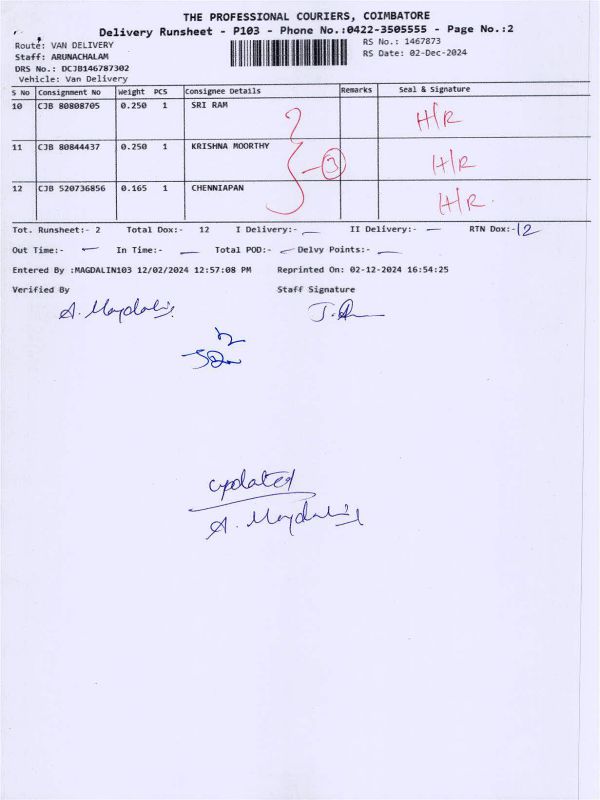 THE PROFESSIONAL COURIERS, COIMBATORE
Delivery Runsheet - P103 - Phone No.:0422-3505555 - Page No.:2
Route: VAN DELIVERY
RS No.: 1467873
Staff: ARUNACHALAM
RS Date: 02-Dec-2024
DRS No.: DCJB146787302
Vehicle: Van Delivery
S No Consignment No Weight PCS Consignee Details Remarks Seal & Signature
10 CJB 80808705 0.250 1 SRI RAM H/R
11 CJB 80844437 0.250 1 KRISHNA MOORTHY 3 H/R
12 CJB 520736856 0.165 1 CHENNIAPAN H/R.
Tot. Runsheet:- 2 Total Dox:- 12 I Delivery:- — II Delivery:- — RTN Dox:- 12
Out Time:- — In Time:- — Total POD:- — Delvy Points:- —
Entered By :MAGDALIN103 12/02/2024 12:57:08 PM Reprinted On: 02-12-2024 16:54:25
Verified By Staff Signature
A. Magdalin
updated
A. Magdalin